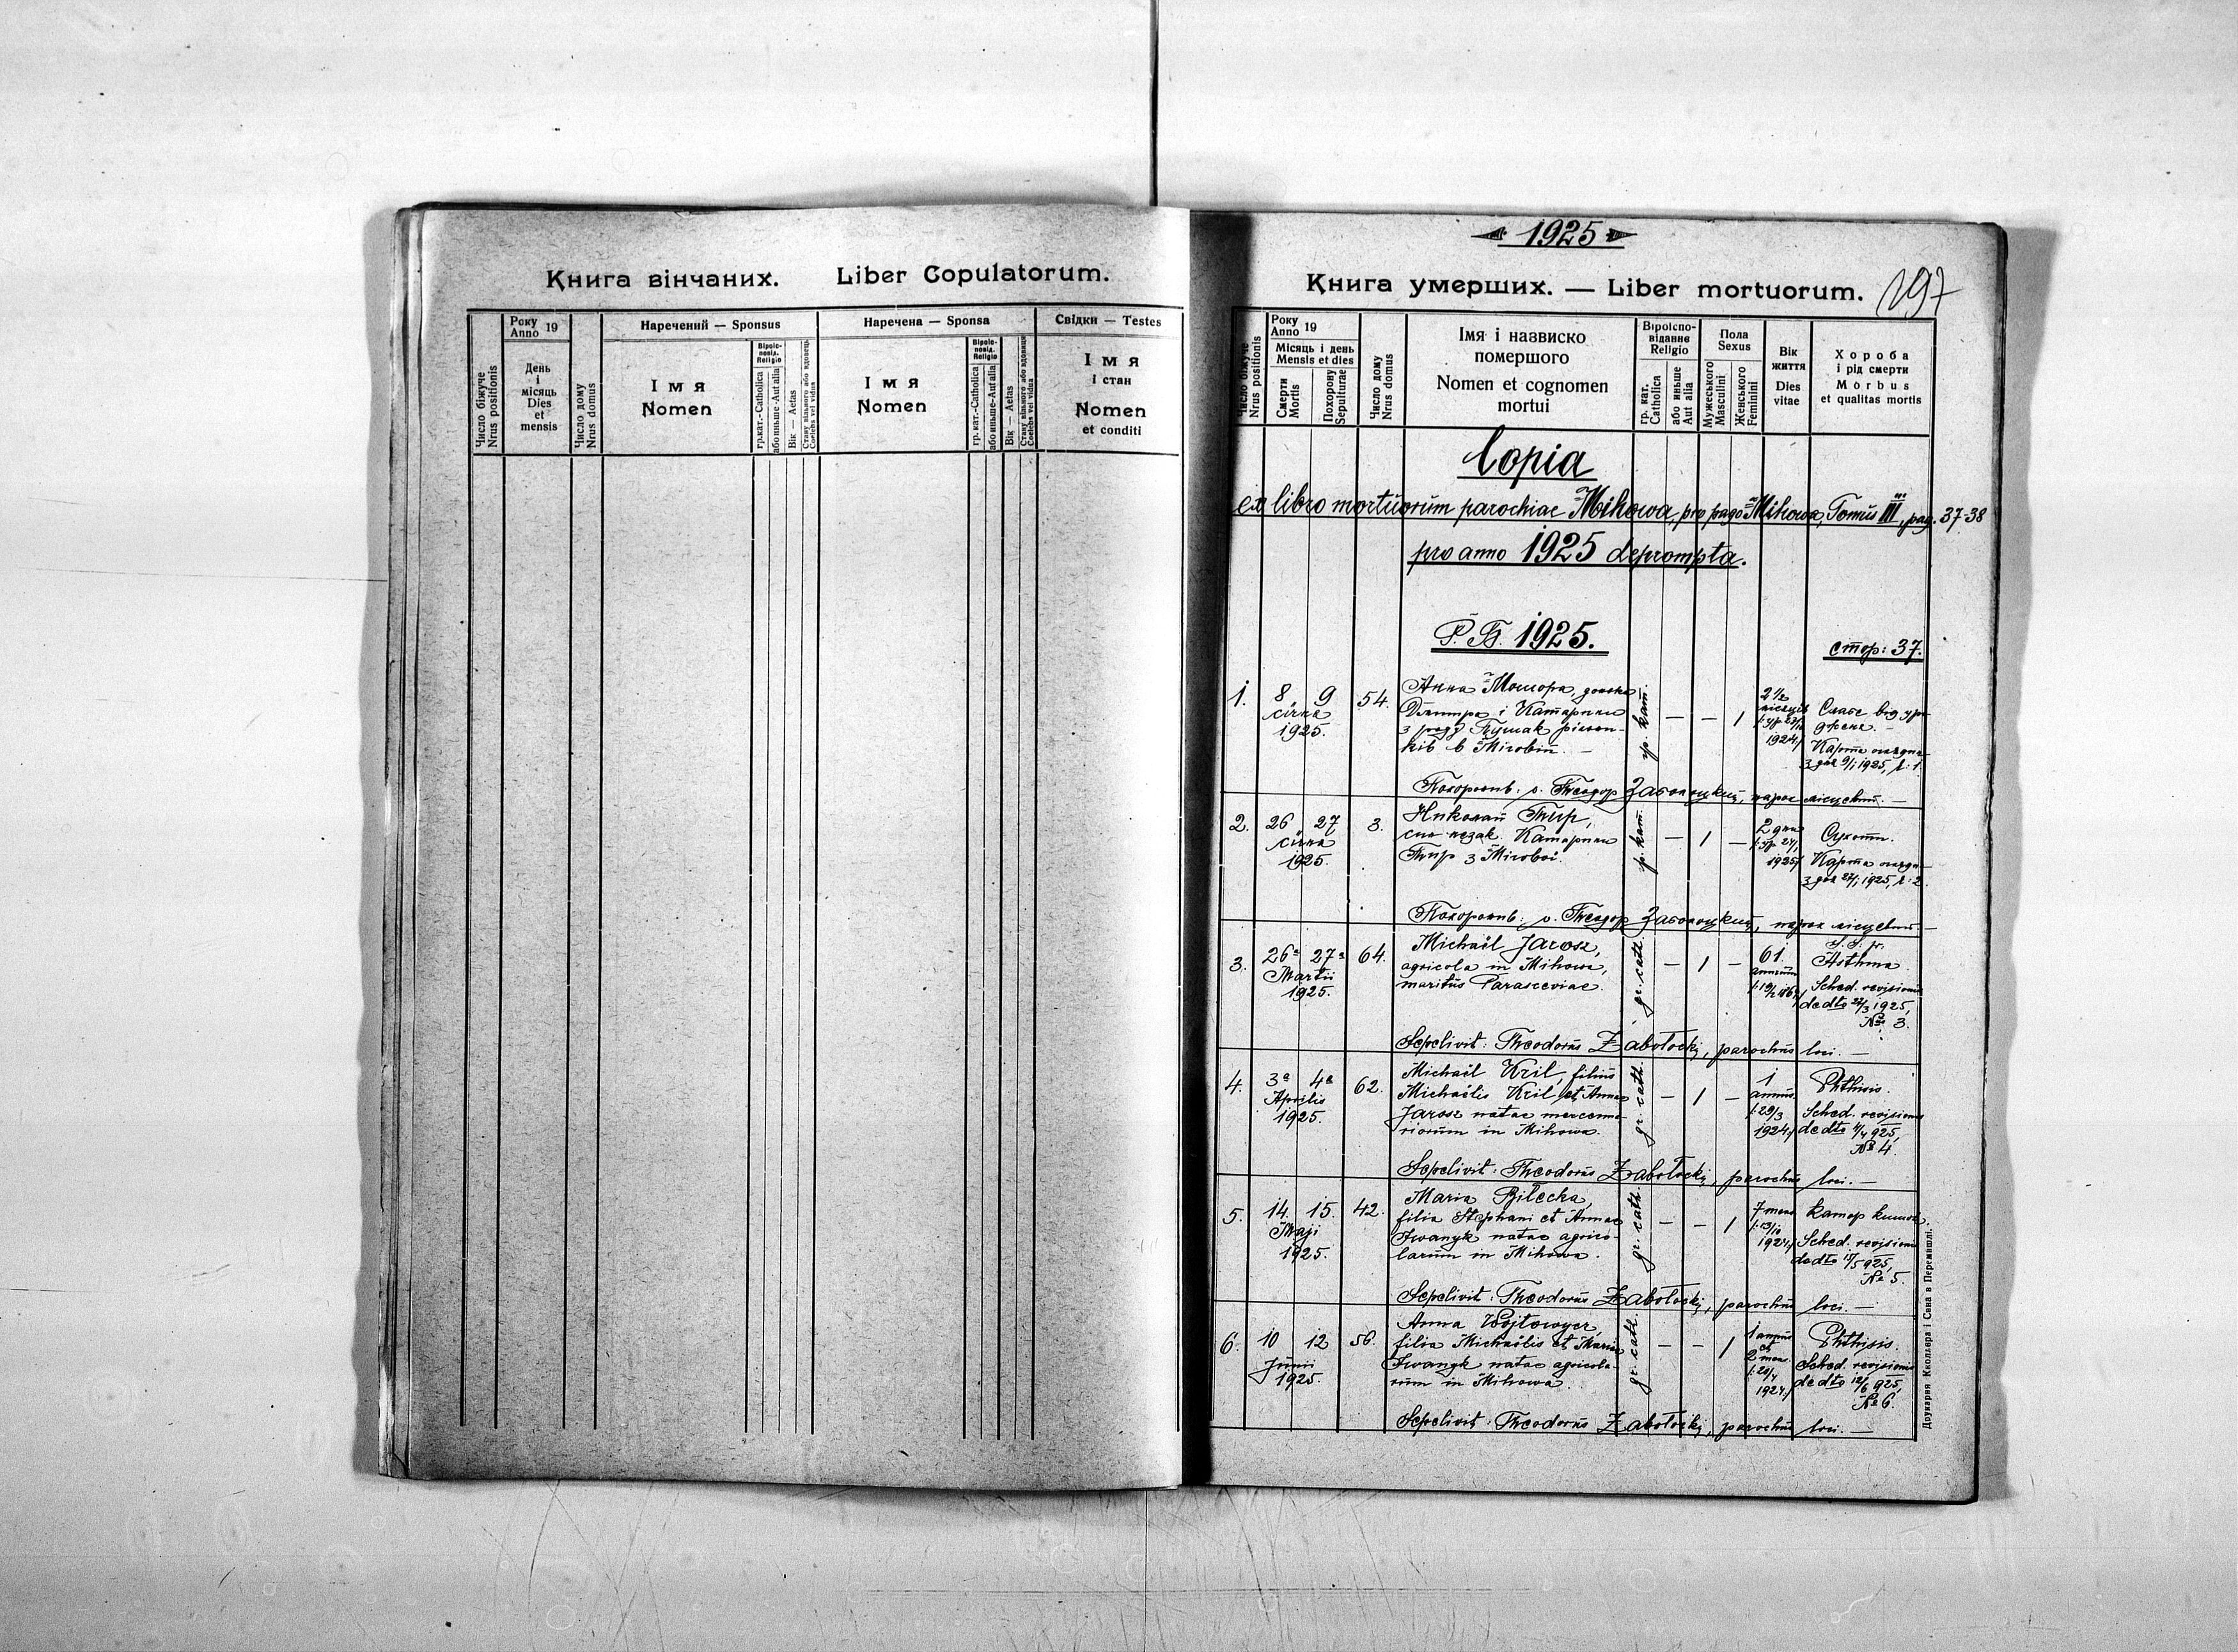 Книга вінчаних. Liber Copulatorum.
Року
Anno 19
Наречений — Sponsus
Наречена — Sponsa
Свідки — Testes
Число біжуче
Nrus positionis
День
і
місяць
Dies
et
mensis
Число дому
Nrus domus
Імя
Nomen
Віроіс-
повід.
Religio
гр.кат.-Catholica
або иньше-Aut alia
Вік — Aetas
Стану вільного або вдовець
Coelebs vel vidua
Імя
Nomen
Віроіс-
повід.
Religio
гр.кат.-Catholica
або иньше-Aut alia
Вік — Aetas
Стану вільного або вдовиця
Coelebs vel vidua
Імя
і стан
Nomen
et conditi
1925
Книга умерших. — Liber mortuorum.
197
Число біжуче
Nrus positionis
Року
Anno 19
Місяць і день
Mensis et dies
Смерти
Mortis
Похорону
Sepulturae
Число дому
Nrus domus
Імя і назвиско
помершого
Nomen et cognomen
mortui
Віроіспо-
відание
Religio
гр. кат.
Catholica
або иньше
Aut alia
Пола
Sexus
Мужеського
Masculini
Женського
Feminini
Вік
життя
Dies
vitae
Хороба
і рід смерти
Morbus
et qualitas mortis
Copia
ex libro mortuorum parochiae Mihowa, pro pago Mihowa, Tomus III, pag. 37-38
pro anno 1925 deprompta.
Р. Б. 1925.
стор: 37.
1. 8 9 54. Анна
Дмитра і Катарини
1925.
з роду
1924
Карта
1925, ч: 1
Похоронив: о. Теодор Заболоцкий, парох місцевий. —
2. 26 27 3. Николай Тир,
син незак. Катарини
Тир з
1925.
2 дни
1925
Сухоти.
Карта
1925, ч: 2.
Похоронив: о. Теодор Заболоцкий, парох місцевий. —
3. 26 27 64. Michaël Jarosz, gr. cath. — 1 — 61
Martii agricola in Mihowa, annorum Asthma
1925. maritus Parasceviae. Sched. revisionis
de dto 27/3 1925,
№ 3.
Sepelivit: Theodorus Zabołockij, parochus loci. —
4. 3 4 62. Michaël Kril, filius gr. cath. — 1 — 1 Phthisis.
Aprilis Michaëlis Kril et Annae annus Sched. revisionis
1925. Jarosz natae mercena- 29/3 de dto 4/4 925,
riorum in Mihowa. 1924 № 4.
Sepelivit: Theodorus Zabołockij, parochus loci. —
5. 14. 15. 42. Maria Bilecka, gr. cath. — — 1 7 mens
Maji filia Stephani et Annae 13/10 Sched. revisionis
1925. Iwanyk natae agrico- 1924 de dto 15/5 925,
larum in Mihowa. № 5.
Sepelivit: Theodorus Zabołockij, parochus loci. —
6. 10 12 56. Anna gr. cath. — — 1 1 annus Phthisis.
Junii filia Michaëlis et Mariae et 2 mens. Sched. revisionis
1925. Iwanyk natae agricola- de dto 12/6 925,
rum in Mihowa. 1924 № 6.
Sepelivit: Theodorus Zabołockij, parochus loci. —